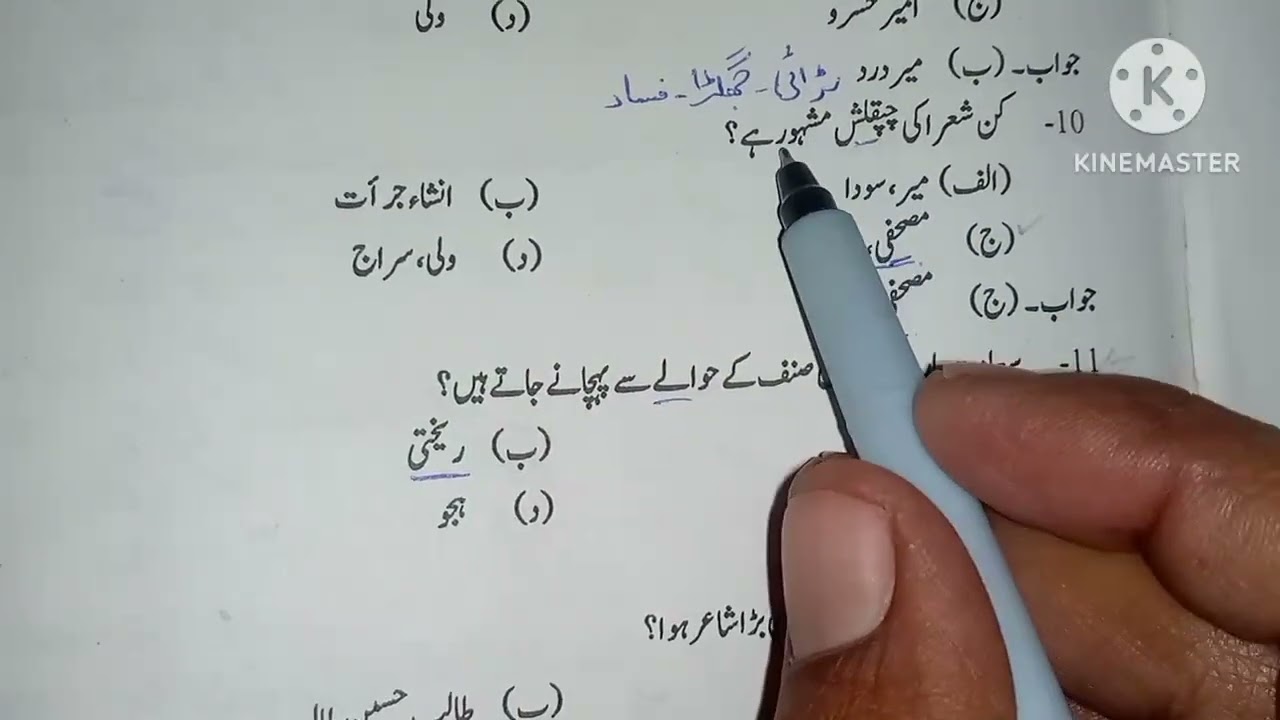 (ج) امیر خسرو (د) ولی
جواب۔ (ب) میر درد لڑائی۔ جھگڑا۔ فساد
10- کن شعرا کی چپقلش مشہور ہے؟
(الف) میر، سودا (ب) انشاء جرأت
(ج) مصحفی، (د) ولی، سراج
جواب۔ (ج) مصحفی
11- صنف کے حوالے سے پہچانے جاتے ہیں؟
(ب) ریختی
(د) ہجو
بڑا شاعر ہوا؟
(ب) طالب حسین
K
KINEMASTER